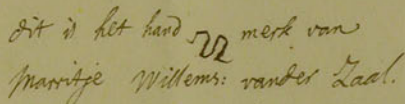 dit is het hand merk van
Marritje Willems: vander Zaal.